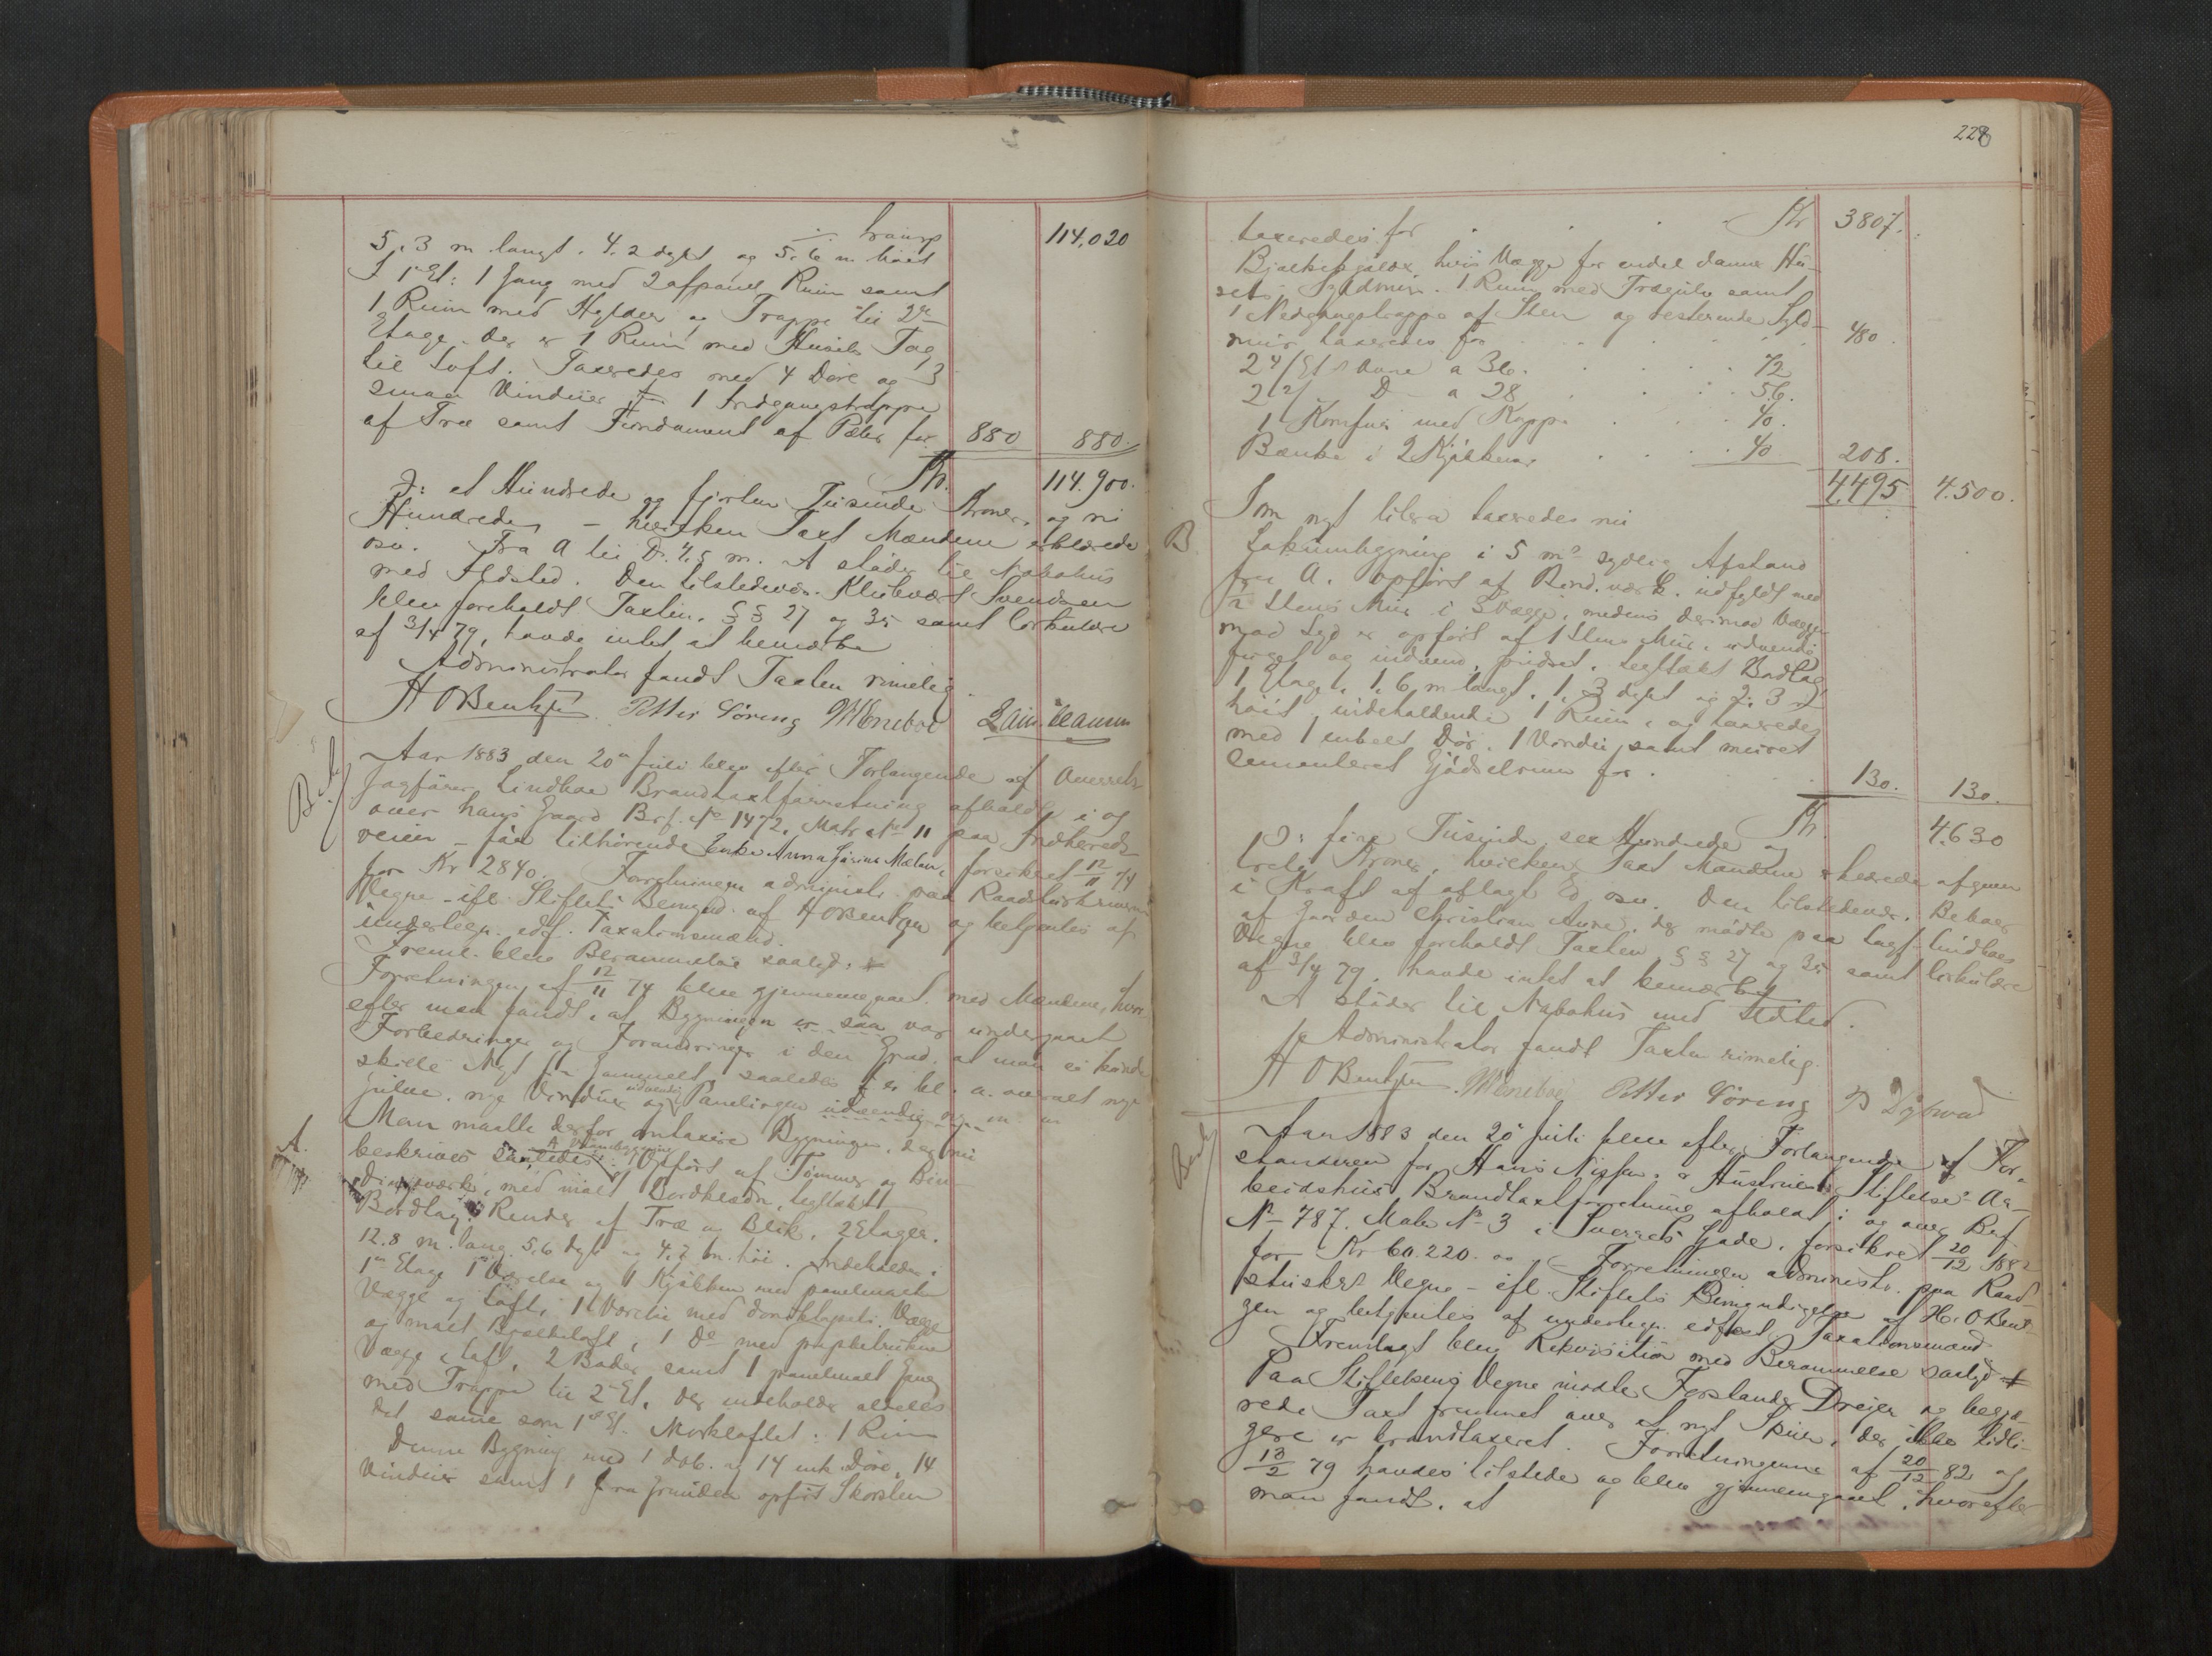 transp 114.020
5.3 m langt. 4.2 dybt og 5.6 m høit
I 1ste Et: 1 Gang med 2 afpanel. Rum samt
1 Rum med Hylder og Trappe til 2den
Etage. der er 1 Rum med Husets Tag
til Loft. Taxeredes med 4 Døre og 3
smaa Vinduer 1 Indgangstrappe
af Træ samt Fundament af Pæler for 880 880
Kr. 114.900.
D: et Hundrede og fjorten Tusinde Kroner og ni
Hundrede – hvilken Taxt Mændene erklærede
osv. Fra A til D. 7,5 m. A støder til Nabohus
med Ildsted. Den tilstedevær. Klubvært Svendsen
blev foreholdt Taxtlov. §§ 27 og 35 samt Cirkulære
af 3/4 79, havde intet at bemærke
Administrator fandt Taxten rimelig.
H O Bentzen Petter Søring
Besig
Aar 1883 den 20de Juli blev efter Forlangende af Overrets
sagfører Lindboe Brandtaxtforretning afholdt i og
over hans Gaard Brf. No 1472. Matr No 11 paa Indhereds
veien – før tilhørende Enke Anna Mælan, forsikret 12/11 74
for Kr 2840. Forretningen administr. paa Raadstuskriverens
Vegne – ifl. Stiftets Bemynd. af H O Bentzen og betjentes af
underteg. edf. Taxationsmænd.
Freml. blev Berammelse saalyd:
Forretningen af 12/11 74 blev gjennemgaaet med Mændene, hvor
efter man fandt, at Bygningen er saa var undergaaet
Forbedringer og Forandringer i den Grad at man ei kunde
skille Nyt fra Gammelt, saaledes er bl. a. overalt nye
gulve, nye Vinduer og udvendig Panelingen udvendig m. m
Man maatte derfor omtaxere Bygningen, der nu
A. beskrives saaledes: A Vaaningsbygning Opført af Tømmer og Bin-
dingsværk, med malt Bordklædn. teglstækt
Bordtag, Render af Træ og Blik. 2 Etager.
12.8 m. lang. 5.6 dyb og 4.7 m. høi. Indeholder i
1ste Etage 1 Værelse og 1 Kjøkken med panelmalte
Vægge og Loft, 1 Værelse med Vægge
og malt Brætteloft, 1 Do med papbetrukne
Vægge, Loft, 2 Boder samt 1 panelmalt Gang
med Trappe til 2 Et. der indeholder aldeles
det samme som 1ste Et. Mørkeloftet: 1 Rum
Denne Bygning med 1 dob. og 14 enk. Døre, 14
Vinduer samt 1 fra Grunden opført Skorsten
228
taxeredes for . . . Kr 3807.
Bjælkekjælder, hvis Vægge for endel danner Hu-
sets Syldmur. 1 Rum med Trægulv samt
1 Nedgangstrappe af Sten og resterende Syld-
mur taxeredes for . . . 480.
2 4/Et s Ovne a 36 . . . 72
2 2/ D a 28 . . . 56.
1 Komfur med Kappe . . . 40.
Bænke i 2 Kjøkkener . . . 40 208.
4495 4.500.
Som nyt litera taxeredes nu
B. Lokumbygning i 5 ms sydlig Afstand
fra A. Opført af Bind.værk. udfyldt med
1/2 Stens Mur i 3 Vægge, medens derimod Væggen
mod Syd er opført af 1 Stens Mur, udvendig
farvet og indvend. pudset. teglstækt Bordtag
1 Etage, 1,6 m langt, 1,3 dybt og 2,3 m
høit indeholdende 1 Rum, og taxeredes
med 1 enkelt Dør, 1 Vindu, samt muret
cementeret Gjødselrum for . . . 130. 130.
Kr. 4630
D: fire Tusinde sex Hundrede og
tredve Kroner, hvilken Taxt Mændene erklærede afgiven
i Kraft af aflagt Ed osv. Den tilstedevær. Beboer
af Gaarden Christian Aune, der mødte paa Sagf. Lindboes
Vegne blev foreholdt Taxtlov §§ 27 og 35 samt Cirkulære
af 3/4 79. havde intet at bemærke
A støder til Nabohus med Ildsted.
Administrator fandt Taxten rimelig.
H O Bentzen Petter Søring
Besig
Aar 1883 den 20 Juli blev efter Forlangende af For-
standeren for Hans Nissen & Hustrues Stiftelse Ar-
beidshus Brandtaxtforretning afholdt i og over Brf
No 787. Matr No 3 i Sverres Gade, forsikret 20/12 1882
for Kr 60.220.00. Forretningen administr. paa Raad-
stuskr Vegne – ifl. Stiftets Bemyndigelse af H. O Bent-
zen og betjentes af underteg. edfæst. Taxationsmænd
Fremlagt blev Rekvisition med Berammelse saalyd
Paa Stiftelsens Vegne mødte Forstander Dreyer og begjæ-
rede Taxt fremmet over et nyt Skur, der ikke tidli-
gere er brandtaxeret. Forretningerne af 20/12 82 og
13/2 79 havdes tilstede og blev gjennemgaaet, hvorefter
man fandt, at